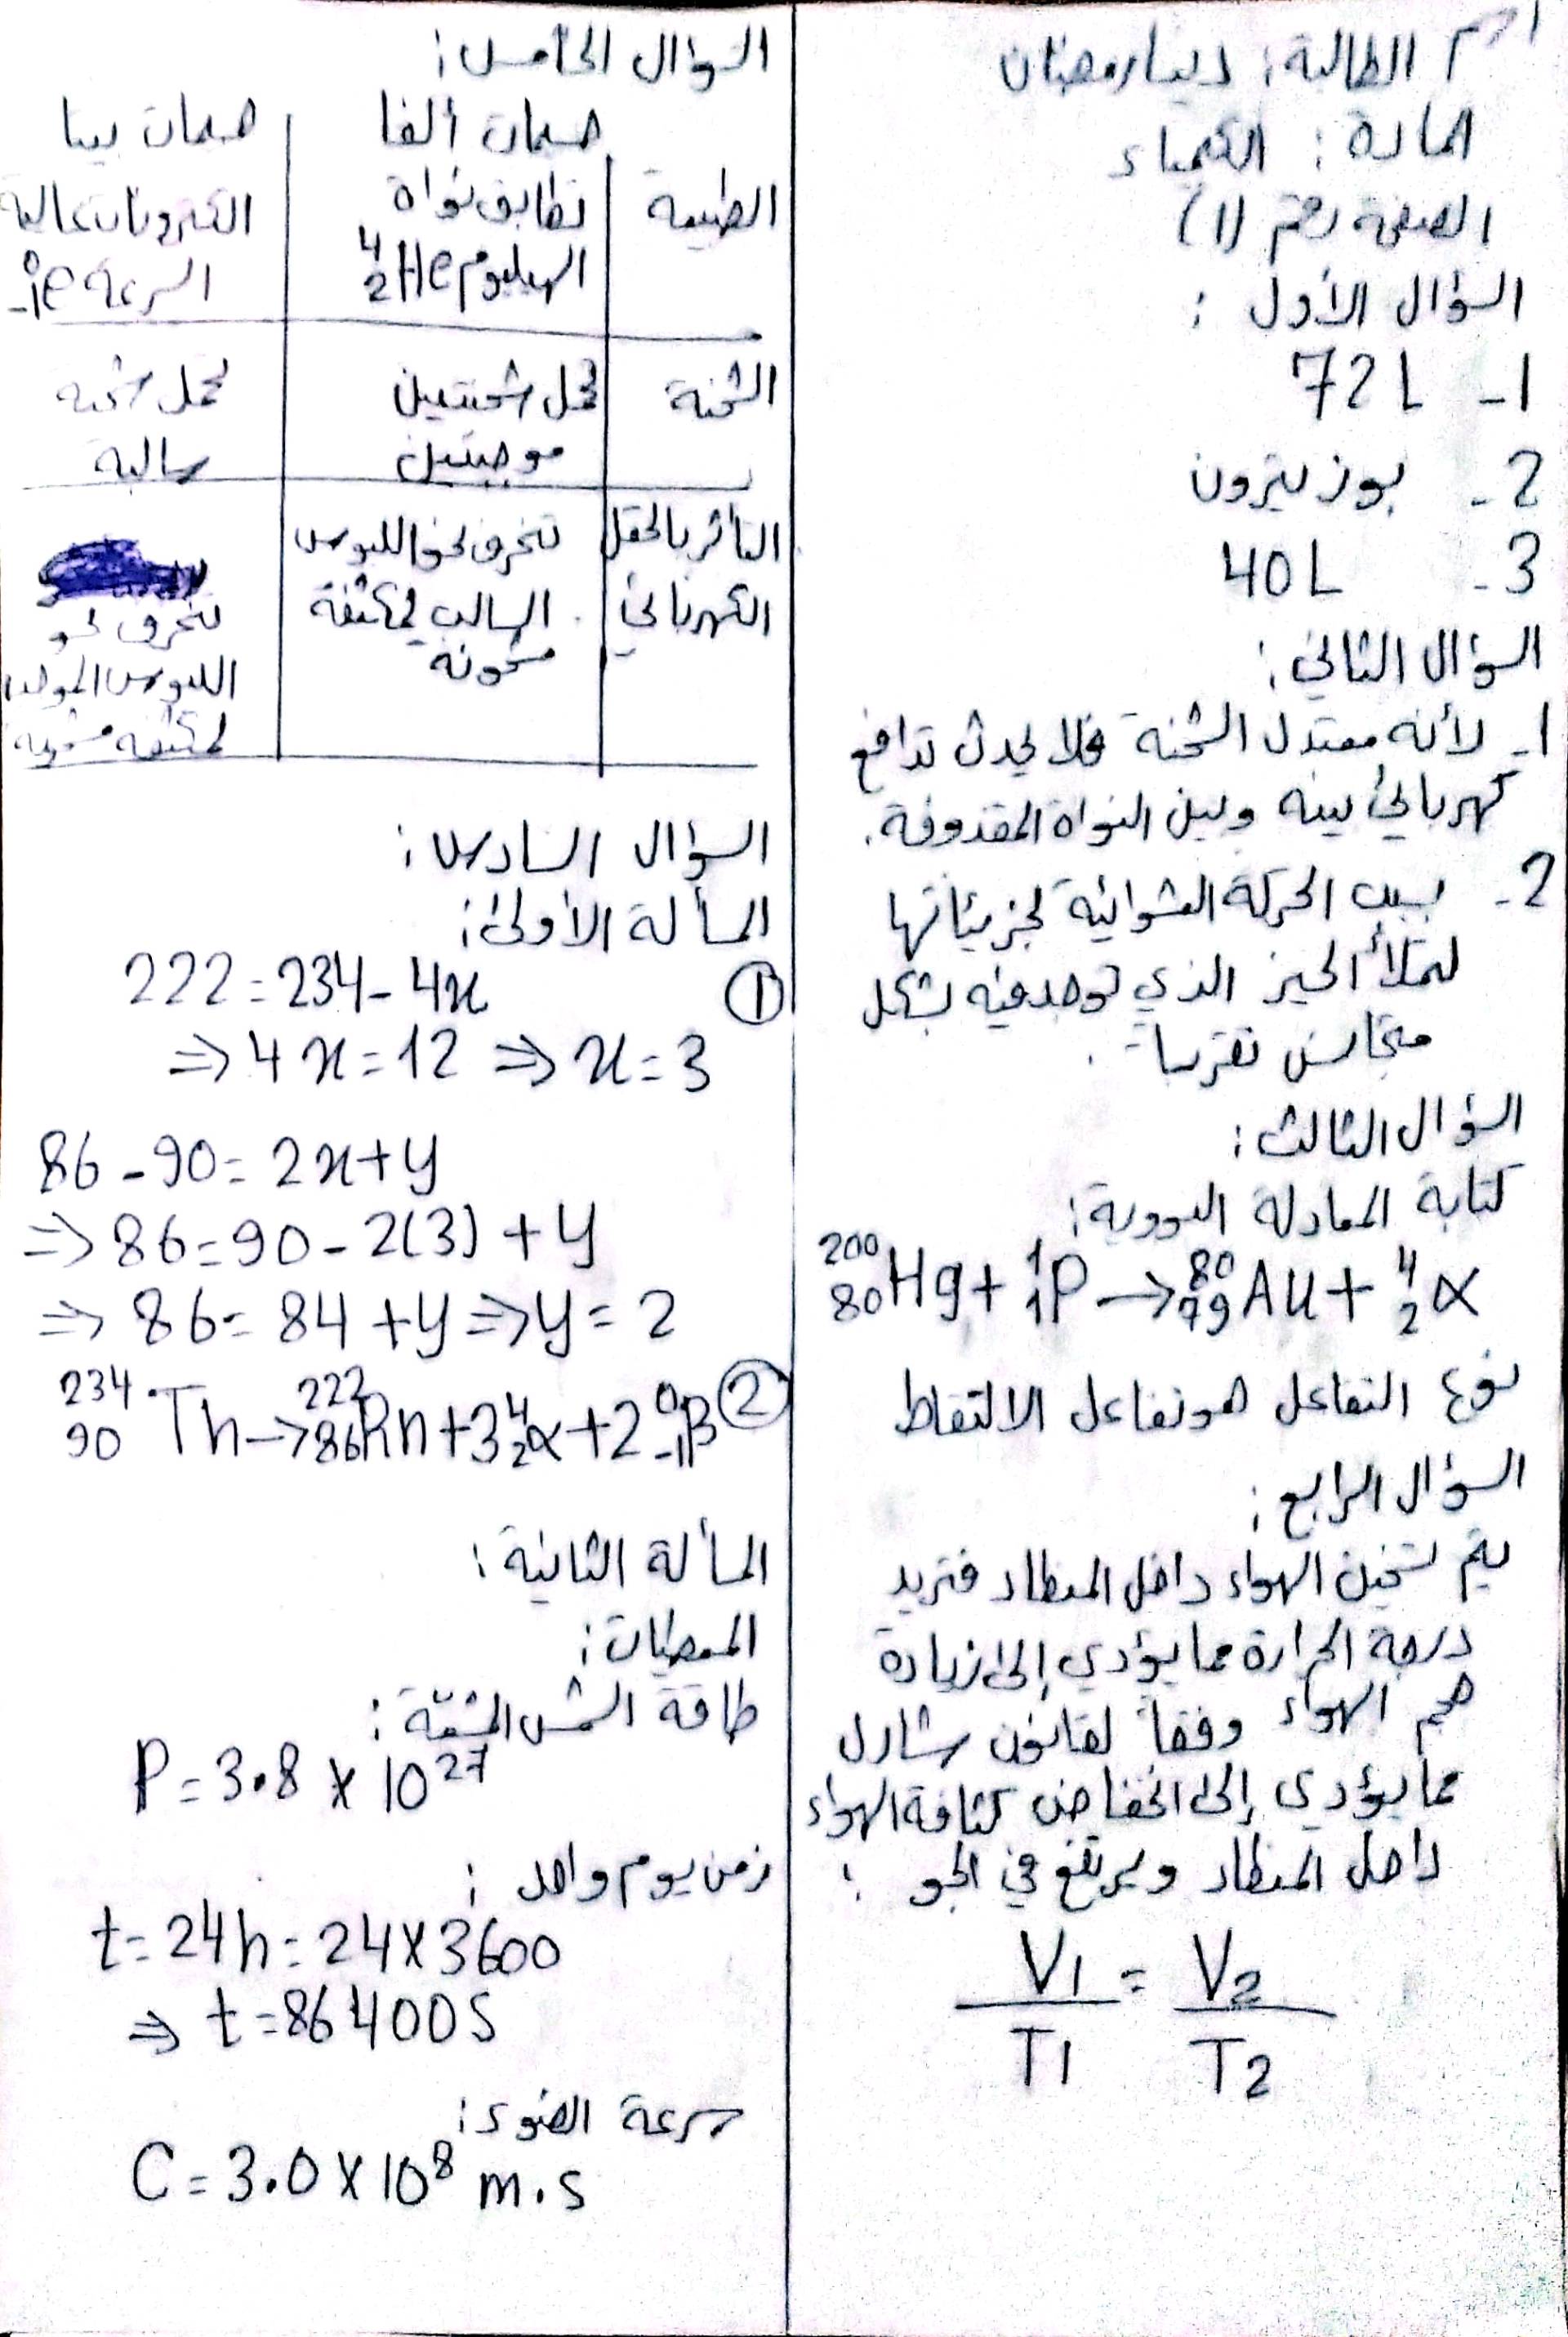 اسم الطالبة: ديما رمضان
المادة: الكيمياء
الصفحة رقم (1)
السؤال الأول:
1- 72L
2- بوزيترون
3- 40L
السؤال الثاني:
1- لأنه معتدل الشحنة فلا يحدث تدافع
كهربائي بينه وبين النواة المقذوفة.
2- بسبب الحركة العشوائية لجزيئاتها
لتملأ الحيز الذي توجد فيه بشكل
متجانس تقريباً.
السؤال الثالث:
كتابة المعادلة النووية:
²⁰⁰₈₀Hg + ¹₁P → ⁸⁰₇₉Au + ⁴₂α
نوع التفاعل هو تفاعل الالتقاط
السؤال الرابع:
يتم تسخين الهواء داخل المنطاد فتزيد
درجة الحرارة مما يؤدي إلى زيادة
حجم الهواء وفقاً لقانون شارل
مما يؤدي إلى انخفاض كثافة الهواء
داخل المنطاد ويرتفع في الجو:
V1/T1 = V2/T2
السؤال الخامس:
جسيمات ألفا جسيمات بيتا
الطبيعة تطابق نواة الكترونات عالية
الهيليوم ⁴₂He السرعة ⁰₋₁e
الشحنة تحمل شحنتين تحمل شحنة
موجبتين سالبة
التأثر بالحقل تنحرف نحو اللبوس
الكهربائي السالب لمكثفة تنحرف نحو
مشحونة اللبوس الموجب
لمكثفة مشحونة
السؤال السادس:
المسألة الأولى:
① 222 = 234 - 4x
⇒ 4x = 12 ⇒ x = 3
86 - 90 = 2x + y
⇒ 86 = 90 - 2(3) + y
⇒ 86 = 84 + y ⇒ y = 2
② ²³⁴₉₀Th → ²²²₈₆Rn + 3⁴₂α + 2⁰₋₁β
المسألة الثانية:
المعطيات:
طاقة الشمس المشعّة:
P = 3.8 × 10²⁷
زمن يوم واحد:
t = 24h = 24 × 3600
⇒ t = 86400S
سرعة الضوء:
C = 3.0 × 10⁸ m.s